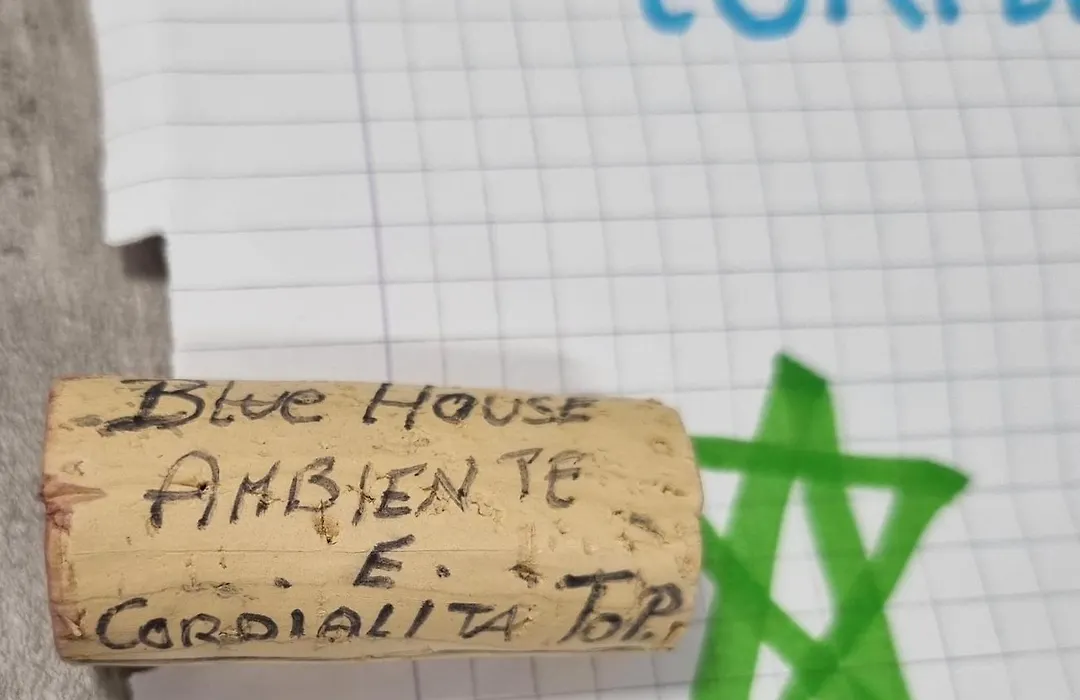 Blue HOUSE
AMBIENTE
. E .
CORDIALITA TOP.